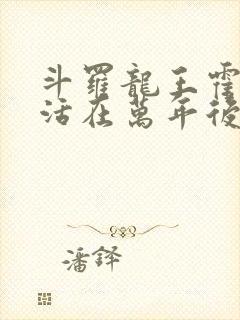 斗羅龍王霍
活在萬年後
潘鐸